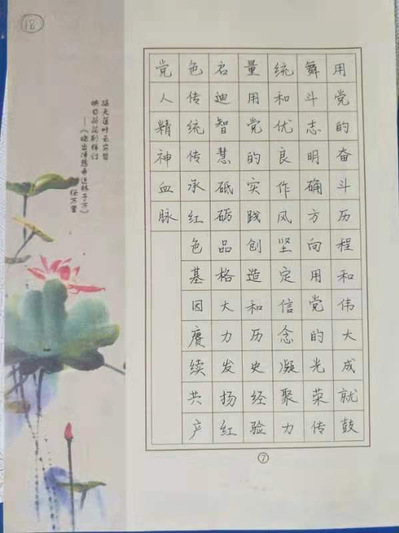 18
用党的奋斗历程和伟大成就鼓
舞斗志明确方向用党的光荣传
统和优良作风坚定信念凝聚力
量用党的实践创造和历史经验
启迪智慧砥砺品格大力发扬红
色传统传承红色基因赓续共产
党人精神血脉
接天莲叶无穷碧
映日荷花别样红
——《晓出净慈寺送林子方》
杨万里
7